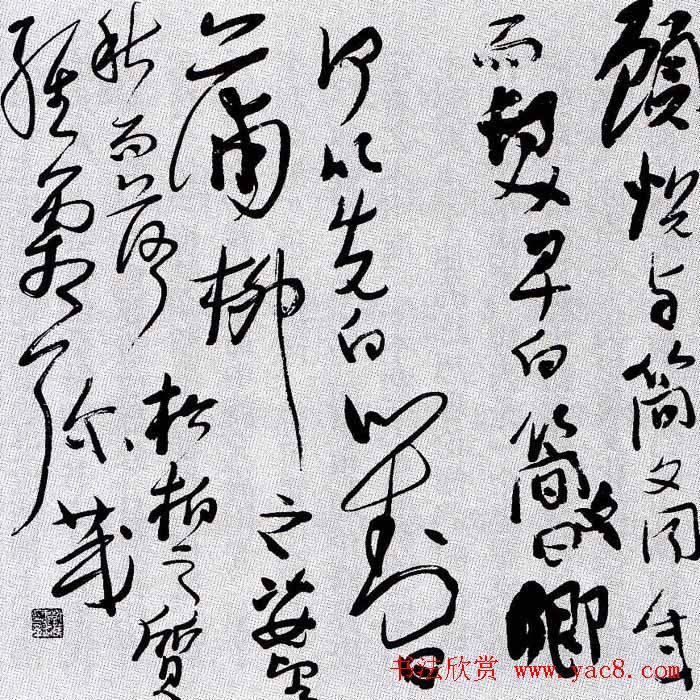 顧悦与简文同年
而髮早白简文曰卿
何以先白對曰
蒲柳之姿望
秋而落松柏之質
經霜弥茂
书法欣赏 www.yac8.com